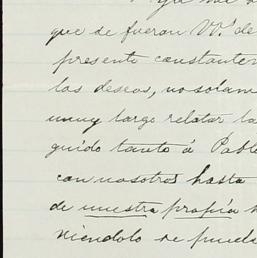 que se fueron VV.s de
presente constantem
los deseos, no solam
muy largo relatar la
guido tanto á Pabl
con nosotros hasta
de nuestra propia
niéndolo se pued